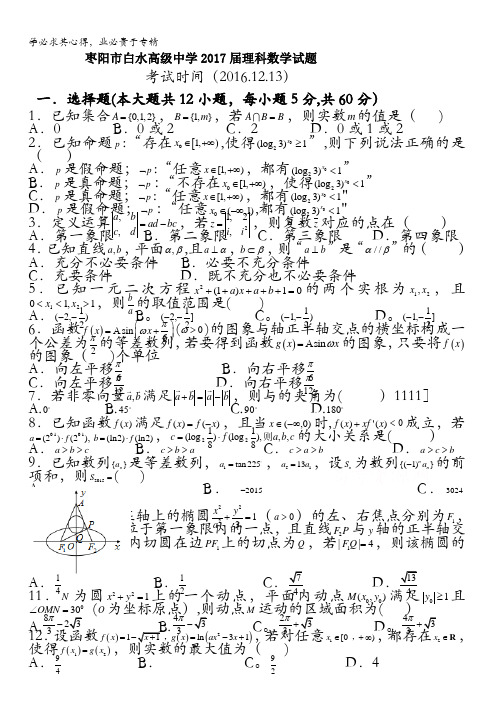 学必求其心得，业必贵于专精
枣阳市白水高级中学2017届理科数学试题
考试时间（2016.12.13）
一．选择题(本大题共12小题，每小题5分,共60分)
1．已知集合A={0,1,2}，B={1,m}，若A∩B=B，则实数m的值是（ ）
A．0 B．0或2 C．2 D．0或1或2
2．已知命题p：“存在x₀∈[1,+∞),使得(log₂3)^x₀≥1”,则下列说法正确的是
（ ）
A．p是假命题；¬p：“任意x∈[1,+∞)，都有(log₂3)^x<1”
B．p是真命题；¬p：“不存在x₀∈[1,+∞)，使得(log₂3)^x₀<1”
C．p是真命题；¬p：“任意x∈[1,+∞)，都有(log₂3)^x<1"
D．p是假命题；¬p：“任意x∈(-∞,1),都有(log₂3)^x<1"
3．定义运算|a, b; c, d|=ad-bc，若z=|1, 2; i, i²|，则复数z̄对应的点在（ ）
A．第一象限 B．第二象限 C．第三象限 D．第四象限
4．已知直线a,b，平面α,β,且a⊥α，b⊂β，则“a⊥b”是“α//β”的（ ）
A．充分不必要条件 B．必要不充分条件
C．充要条件 D．既不充分也不必要条件
5．已知一元二次方程x²+(1+a)x+a+b+1=0的两个实根为x₁,x₂，且
0<x₁<1,x₂>1，则b/a的取值范围是( )
A．(-2,-1/2) B。(-2,-1/2] C。(-1,-1/2) D。(-1,-1/2]
6。函数f(x)=Asin(ωx+π/6)(ω>0)的图象与轴正半轴交点的横坐标构成一
个公差为π/2的等差数列,若要得到函数g(x)=Asinωx的图象,只要将f(x)
的图象（ ）个单位
A．向左平移π/6 B．向右平移π/6
C．向左平移π/12 D．向右平移π/12
7。若非零向量a,b满足|a+b|=|a-b|，则与的夹角为( ）1111］
A.0° B.45° C.90° D.180°
8．已知函数f(x)满足f(x)=f(-x)，且当x∈(-∞,0)时,f(x)+xf'(x)<0成立，若
b=(ln2)·f(ln2)，则a,b,c的大小关系是( )
A．a>b>c B．c>b>a C．c>a>b D．a>c>b
9．已知数列{aₙ}是等差数列，a₁=tan225，a₅=13a₁，设Sₙ为数列{(-1)ⁿaₙ}的前
项和，则S₂₀₁₅=( )
B．-2015 C．3024
轴上的椭圆（a>0）的左、右焦点分别为F₁，
位于第一象限内的一点，且直线F₂P与y轴的正半轴交
内切圆在边PF₁上的切点为Q，若|F₁Q|=4，则该椭圆的
A．1/4 B．1/2 C．√7/4 D．√13/4
11．N为圆x²+y²=1上的一个动点，平面内动点M(x₀,y₀)满足|y₀|≥1且
∠OMN=30°(O为坐标原点),则动点M运动的区域面积为( ）
A．8π/3-2√3 B．4π/3-√3 C。2π/3+√3 D。4π/3+√3
12。设函数f(x)=1-√x+1，g(x)=ln(ax²-3x+1)，若对任意x₁∈[0，+∞)，都存在x₂∈R，
使得f(x₁)=g(x₂)，则实数的最大值为（ ）
A．9/4 B． C。9/2 D．4